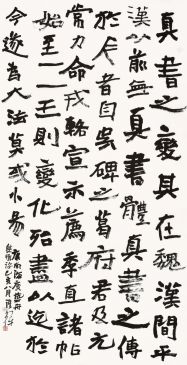 真書之變其在魏漢間乎
漢以前無真書體真書之傳
於今者自吳碑之葛府君及元
常力命戎輅宣示薦季直諸帖
始至二王則變化殆盡以迄於
今遂為大法莫或小易